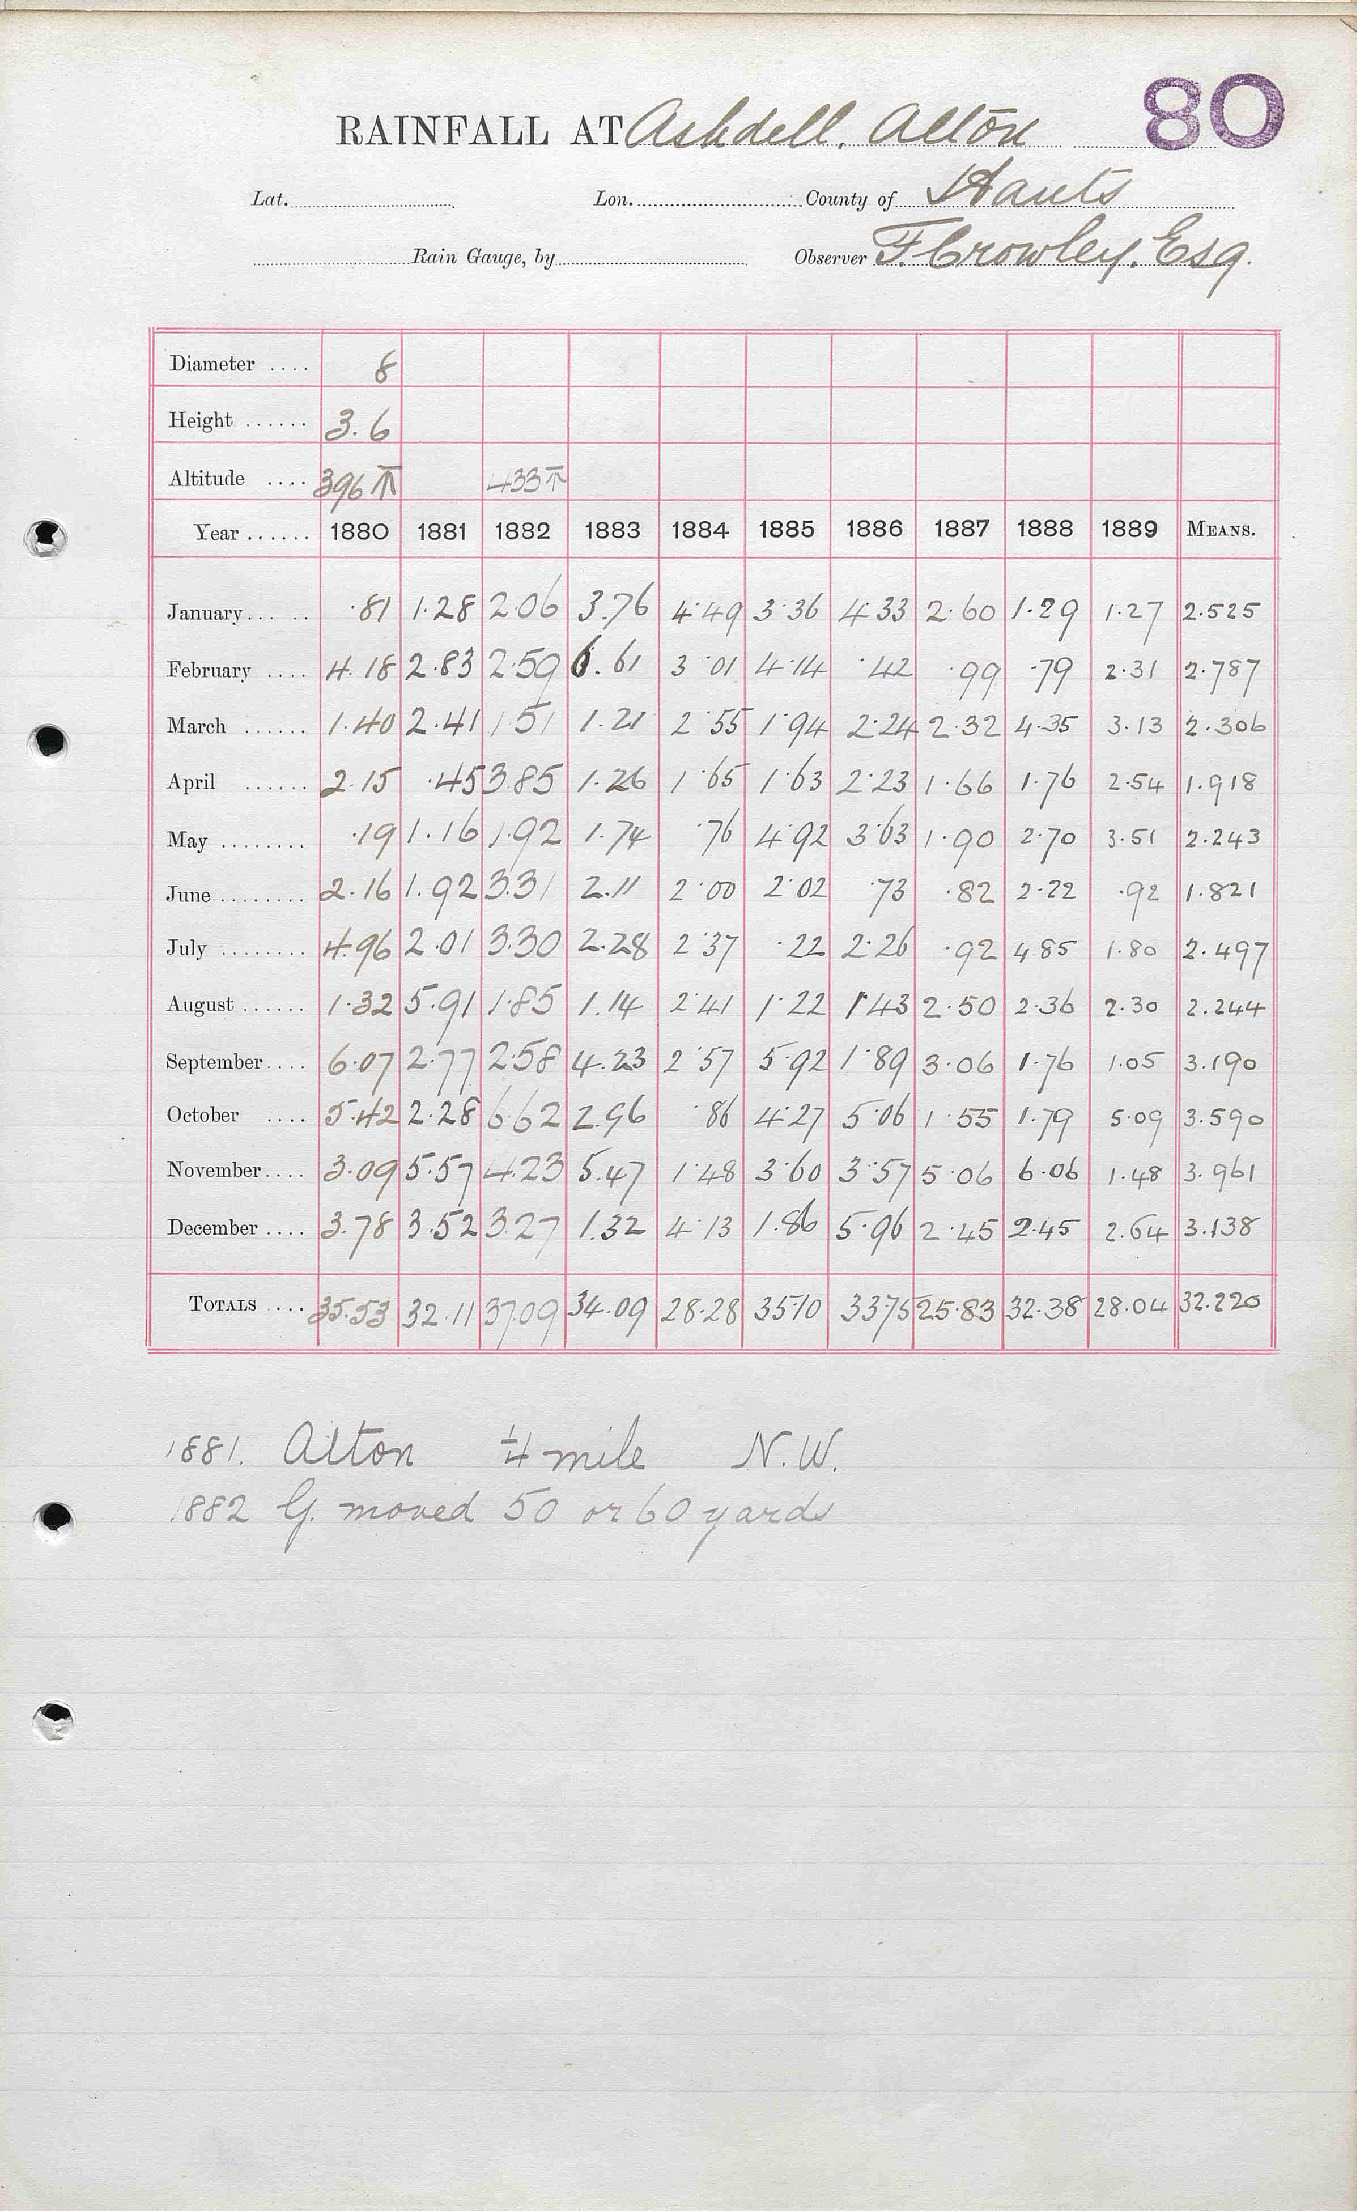 80
RAINFALL AT Ashdell, Alton
Lat. Lon. County of Hants
Rain Gauge, by Observer F. Crowley, Esq.
Diameter .... 8
Height ...... 3.6
Altitude .... 396 T 433 T
Year ...... 1880 1881 1882 1883 1884 1885 1886 1887 1888 1889 MEANS.
January...... ·81 1·28 2·06 3.76 4·49 3·36 4·33 2·60 1·29 1·27 2·525
February .... 4·18 2·83 2·59 6.61 3·01 4·14 ·42 ·99 ·79 2·31 2·787
March ...... 1·40 2·41 1·51 1·21 2·55 1·94 2·24 2·32 4·35 3·13 2·306
April ...... 2·15 ·45 3·85 1·26 1·65 1·63 2·23 1·66 1·76 2·54 1·918
May ........ ·19 1·16 1·92 1·74 ·76 4·92 3·63 1·90 2·70 3·51 2·243
June ........ 2·16 1·92 3·31 2·11 2·00 2·02 ·73 ·82 2·22 ·92 1·821
July ........ 4·96 2·01 3·30 2·28 2·37 ·22 2·26 ·92 4·85 1·80 2·497
August ...... 1·32 5·91 1·85 1.14 2·41 1·22 1·43 2·50 2·36 2·30 2·244
September.... 6·07 2·77 2·58 4·23 2·57 5·92 1·89 3·06 1·76 1·05 3·190
October .... 5·42 2·28 6·62 2.96 ·86 4·27 5·06 1·55 1·79 5·09 3·590
November.... 3·09 5·57 4·23 5·47 1·48 3·60 3·57 5·06 6·06 1·48 3·961
December .... 3·78 3·52 3·27 1.32 4·13 1·86 5·96 2·45 2·45 2·64 3·138
TOTALS .... 35·53 32·11 37·09 34·09 28·28 35·10 33·75 25·83 32·38 28·04 32·220
1881. Alton ¼ mile N.W.
1882 G. moved 50 or 60 yards